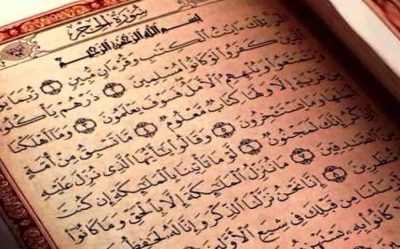 سُورَةُ الحِجْرِ
بِسْمِ اللَّهِ الرَّحْمَٰنِ الرَّحِيمِ
الٓر تِلْكَ ءَايَٰتُ الْكِتَٰبِ وَقُرْءَانٍ مُّبِينٍ ۝١ رُّبَمَا
الَّذِينَ كَفَرُوا لَوْ كَانُوا مُسْلِمِينَ ۝٢ ذَرْهُمْ يَأْكُلُوا
وَيَتَمَتَّعُوا وَيُلْهِهِمُ الْأَمَلُ فَسَوْفَ يَعْلَمُونَ ۝٣ وَمَا أَهْلَكْنَا
مِن قَرْيَةٍ إِلَّا وَلَهَا كِتَابٌ مَّعْلُومٌ ۝٤ مَّا تَسْبِقُ مِنْ أُمَّةٍ
أَجَلَهَا وَمَا يَسْتَـْٔخِرُونَ ۝٥ وَقَالُوا يَٰٓأَيُّهَا الَّذِي نُزِّلَ عَلَيْهِ
الذِّكْرُ إِنَّكَ لَمَجْنُونٌ ۝٦ لَّوْ مَا تَأْتِينَا بِالْمَلَٰٓئِكَةِ إِن كُنتَ
مِنَ الصَّٰدِقِينَ ۝٧ مَا نُنَزِّلُ الْمَلَٰٓئِكَةَ إِلَّا بِالْحَقِّ وَمَا كَانُوا
مُّنظَرِينَ ۝٨ إِنَّا نَحْنُ نَزَّلْنَا الذِّكْرَ وَإِنَّا لَهُ لَحَٰفِظُونَ
أَرْسَلْنَا مِن قَبْلِكَ فِي شِيَعِ الْأَوَّلِينَ
كَانُوا بِهِ